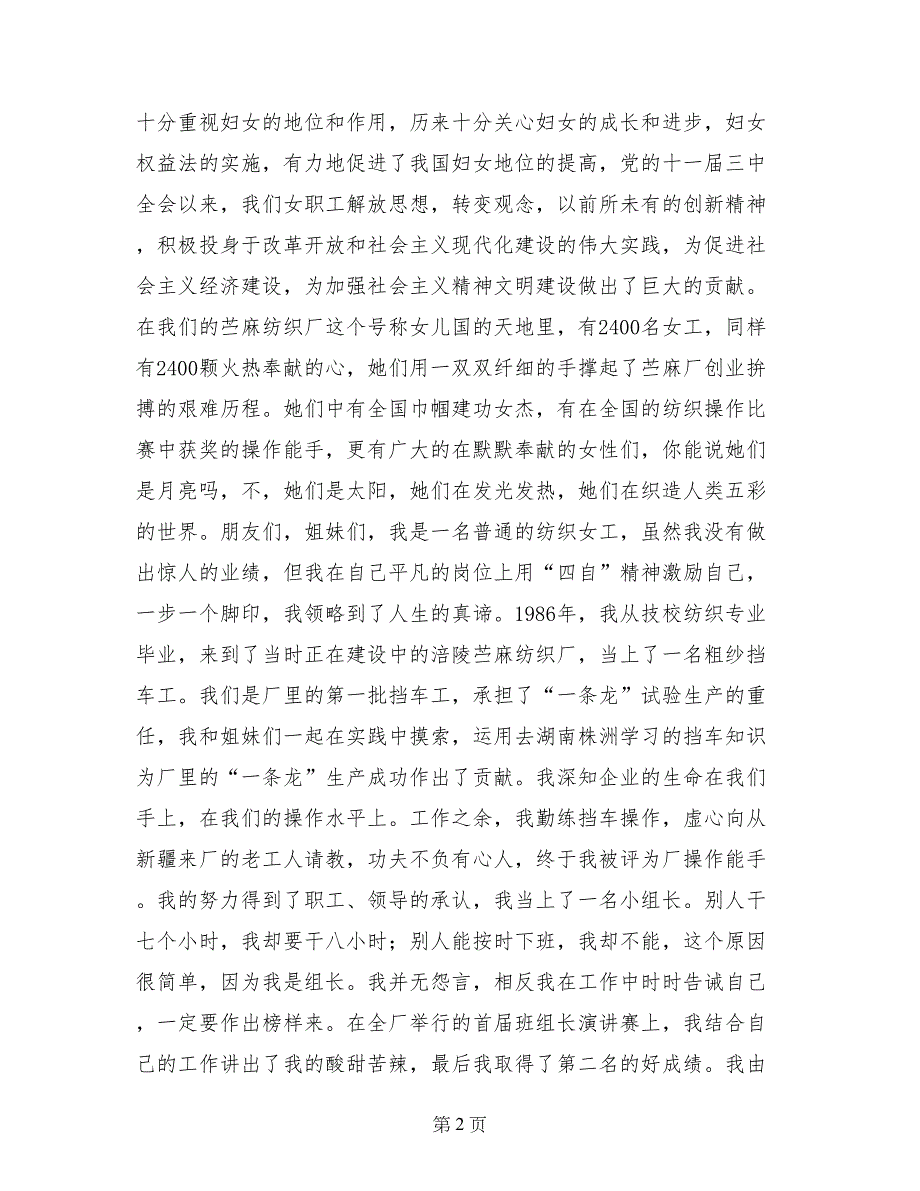 十分重视妇女的地位和作用，历来十分关心妇女的成长和进步，妇女
权益法的实施，有力地促进了我国妇女地位的提高，党的十一届三中
全会以来，我们女职工解放思想，转变观念，以前所未有的创新精神
，积极投身于改革开放和社会主义现代化建设的伟大实践，为促进社
会主义经济建设，为加强社会主义精神文明建设做出了巨大的贡献。
在我们的苎麻纺织厂这个号称女儿国的天地里，有2400名女工，同样
有2400颗火热奉献的心，她们用一双双纤细的手撑起了苎麻厂创业拚
搏的艰难历程。她们中有全国巾帼建功女杰，有在全国的纺织操作比
赛中获奖的操作能手，更有广大的在默默奉献的女性们，你能说她们
是月亮吗，不，她们是太阳，她们在发光发热，她们在织造人类五彩
的世界。朋友们，姐妹们，我是一名普通的纺织女工，虽然我没有做
出惊人的业绩，但我在自己平凡的岗位上用“四自”精神激励自己，
一步一个脚印，我领略到了人生的真谛。1986年，我从技校纺织专业
毕业，来到了当时正在建设中的涪陵苎麻纺织厂，当上了一名粗纱挡
车工。我们是厂里的第一批挡车工，承担了“一条龙”试验生产的重
任，我和姐妹们一起在实践中摸索，运用去湖南株洲学习的挡车知识
为厂里的“一条龙”生产成功作出了贡献。我深知企业的生命在我们
手上，在我们的操作水平上。工作之余，我勤练挡车操作，虚心向从
新疆来厂的老工人请教，功夫不负有心人，终于我被评为厂操作能手
。我的努力得到了职工、领导的承认，我当上了一名小组长。别人干
七个小时，我却要干八小时；别人能按时下班，我却不能，这个原因
很简单，因为我是组长。我并无怨言，相反我在工作中时时告诫自己
，一定要作出榜样来。在全厂举行的首届班组长演讲赛上，我结合自
己的工作讲出了我的酸甜苦辣，最后我取得了第二名的好成绩。我由
第 2 页